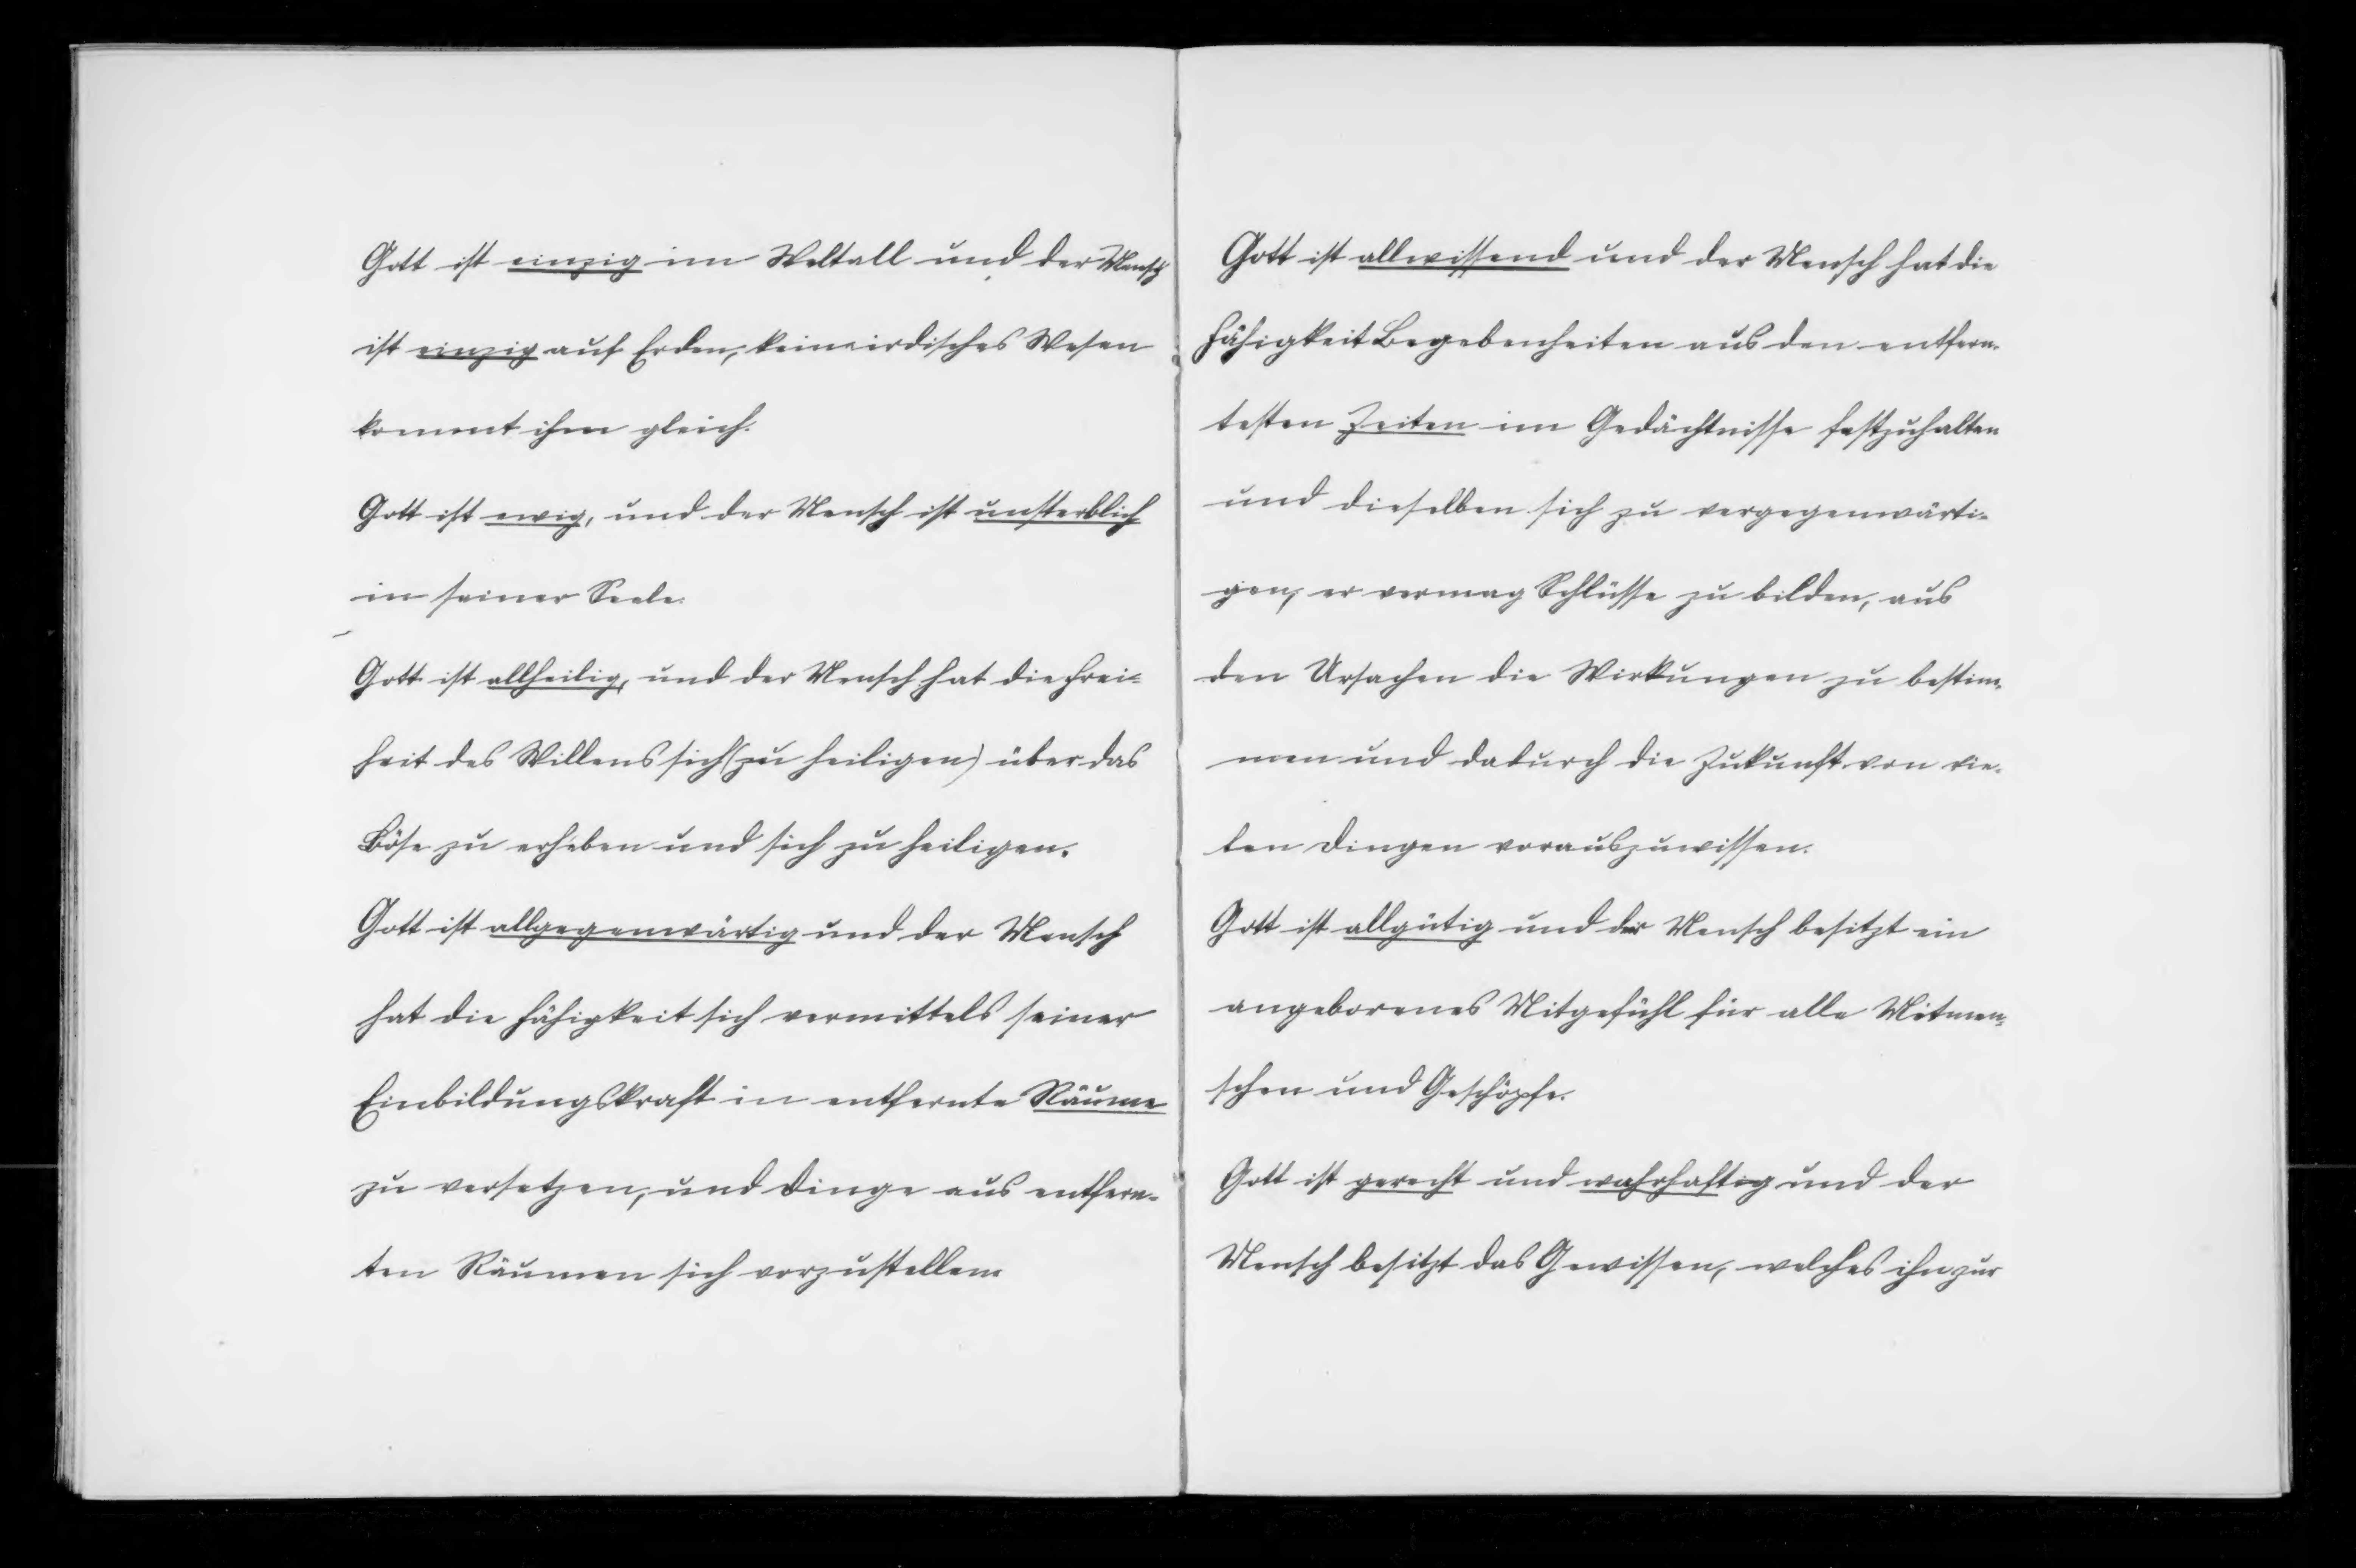 Gott ist einzig im Weltall und der Mensch
ist einzig auf Erden, kein irdisches Wesen
kommt ihm gleich.
Gott ist ewig, und der Mensch ist unsterblich
in seiner Seele.
Gott ist allheilig, und der Mensch hat die Frei-
heit des Willens sich (zu heiligen) über das
Böse zu erheben und sich zu heiligen.
Gott ist allgegenwärtig und der Mensch
hat die Fähigkeit sich vermittels seiner
Einbildungskraft in entfernte Räume
zu versetzen, und Dinge aus entfern-
ten Räumen sich vorzustellen.
Gott ist allwissend und der Mensch hat die
Fähigkeit Begebenheiten aus den entfern-
testen Zeiten im Gedächtnisse festzuhalten
und dieselben sich zu vergegenwärti-
gen, er vermag Schlüsse zu bilden, aus
den Ursachen die Wirkungen zu bestim-
men und dadurch die Zukunft von vie-
len Dingen vorauszuwissen.
Gott ist allgütig und der Mensch besitzt ein
angeborenes Mitgefühl für alle Mitmen-
schen und Geschöpfe.
Gott ist gerecht und wahrhaftig und der
Mensch besitzt das Gewissen, welches ihn zur